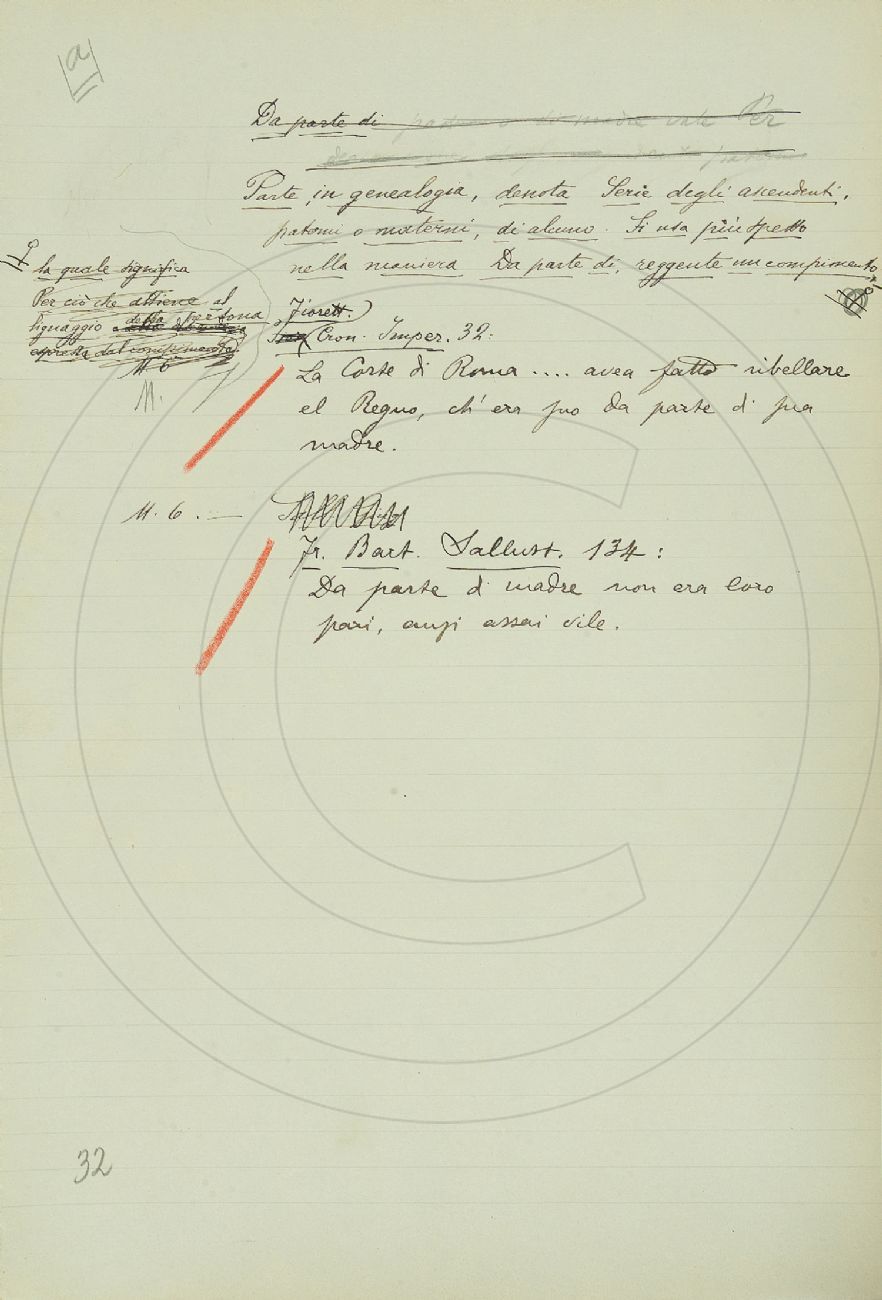 a
Da parte di padre o di madre vale Per
Parte, in genealogia, denota Serie degli ascendenti,
paterni o materni, di alcuno. Si usa più spesso
nella maniera Da parte di, reggente un compimento
la quale significa
Per ciò che attiene al
lignaggio della Persona
espressa dal compimento
N. 6
N.
Fiorett.
Cron. Imper. 32:
La Corte di Roma .... avea fatto ribellare
el Regno, ch'era suo da parte di sua
madre.
N. 6. —
Fr. Bart. Sallust. 134:
Da parte di madre non era loro
pari, anzi assai vile.
32